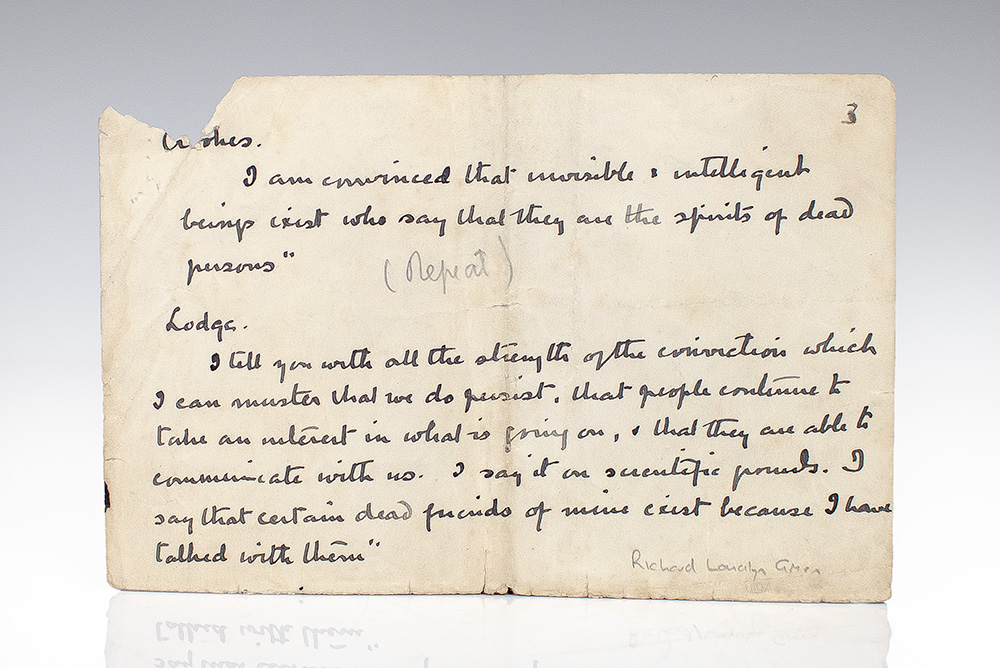 3
Crookes.
I am convinced that invisible & intelligent
beings exist who say that they are the spirits of dead
persons"
(Repeat)
Lodge.
I tell you with all the strength of the conviction which
I can muster that we do persist, that people continue to
take an interest in what is going on, & that they are able to
communicate with us. I say it on scientific grounds. I
say that certain dead friends of mine exist because I have
talked with them"
Richard Lancelyn Green